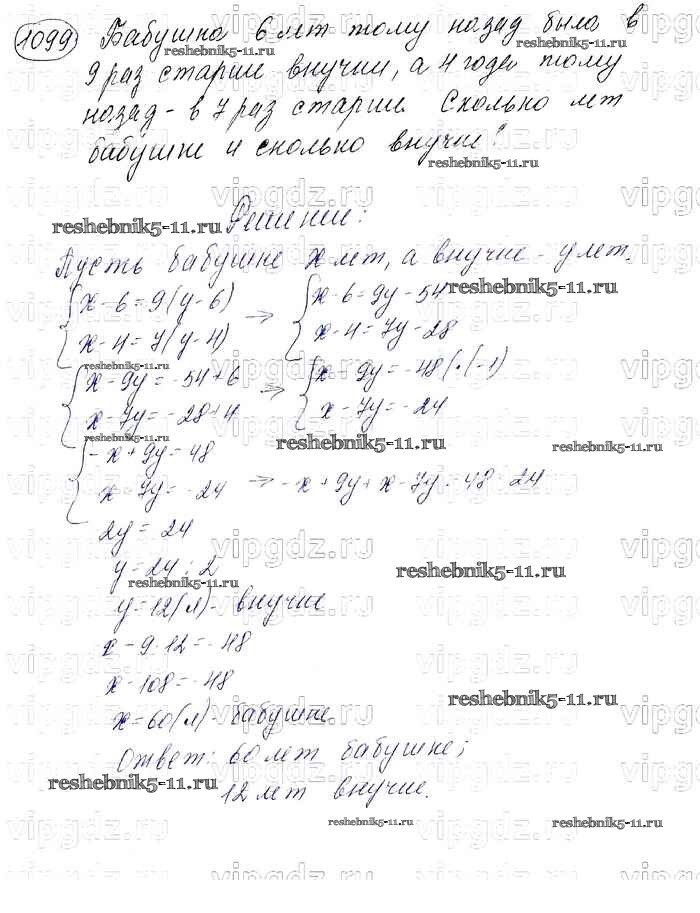 1099 Бабушка 6 лет тому назад была в
9 раз старше внучки, а 4 года тому
назад - в 7 раз старше. Сколько лет
бабушке и сколько внучке?
Решение:
Пусть бабушке x лет, а внучке - y лет.
x - 6 = 9(y - 6) => x - 6 = 9y - 54
x - 4 = 7(y - 4) x - 4 = 7y - 28
x - 9y = -54 + 6 => x - 9y = -48 | · (-1)
x - 7y = -28 + 4 x - 7y = -24
-x + 9y = 48
x - 7y = -24 => -x + 9y + x - 7y = 48 - 24
2y = 24
y = 24 : 2
y = 12 (л) - внучке
x - 9 · 12 = -48
x - 108 = -48
x = 60 (л) - бабушке.
Ответ: 60 лет бабушке;
12 лет внучке.
reshebnik5-11.ru
vipgdz.ru